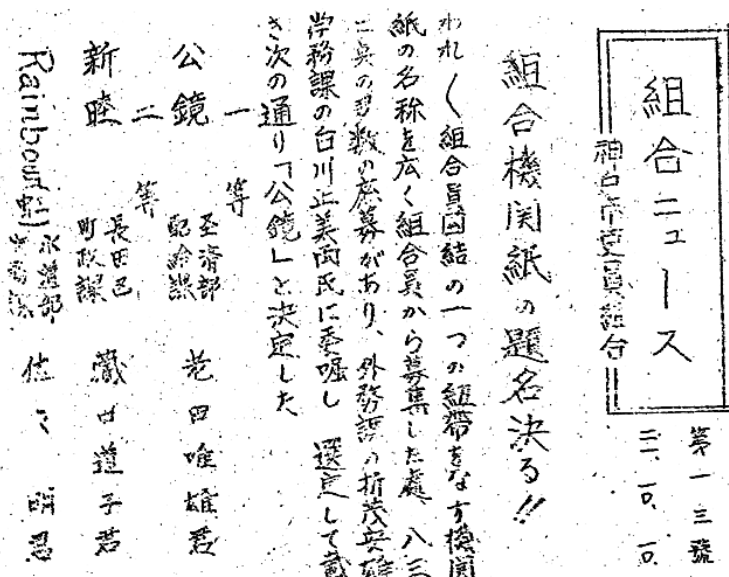 組合ニュース
神戸市吏員組合
第一三號
二一、一〇、一〇、
組合機関紙の題名決る!!
われ〱組合員団結の一つの紐帯をなす機関
紙の名称を広く組合員から募集した處、八三
二点の多数の応募があり、外務課の折茂英雄
学務課の白川正美両氏に委嘱し 選定して戴
き次の通り「公鏡」と決定した
一等
公鏡 経済部 配給課 老田唯雄君
二等
新睦 長田区 町政課 蔵田道子君
Rainbow(虹) 水道部 佐々 明君